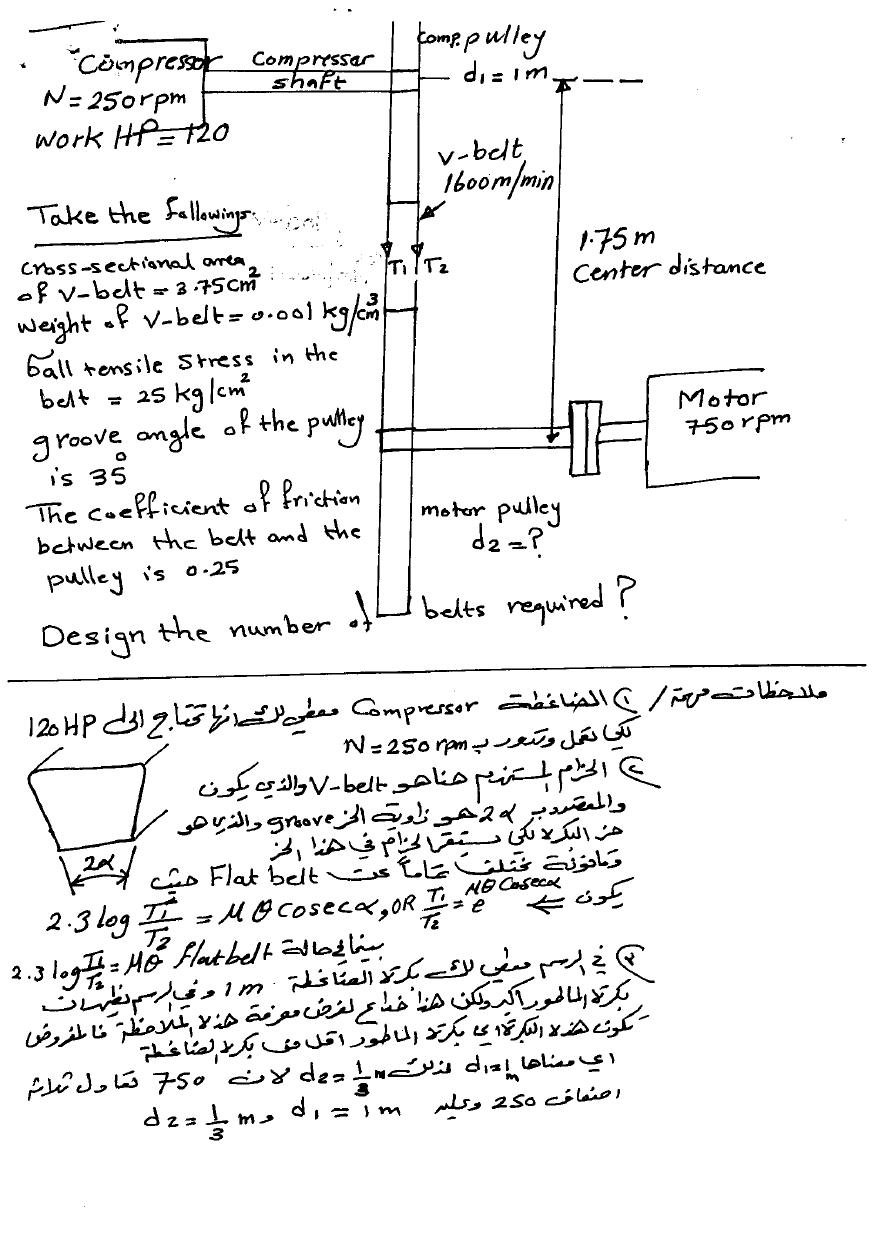 Compressor
N = 250 rpm
Work HP = 120
Compressor
shaft
comp. pulley
d1 = 1m
V-belt
1600m/min
Take the followings
cross-sectional area
of V-belt = 3.75cm2
Weight of V-belt = 0.001 kg/cm3
Gall tensile stress in the
belt = 25 kg/cm2
groove angle of the pulley
is 35°
The coefficient of friction
between the belt and the
pulley is 0.25
T1 T2
1.75 m
Center distance
Motor
750 rpm
motor pulley
d2 = ?
Design the number of belts required ?
ملاحظات مهمة / ① الضاغطة Compressor معطي لك انها تحتاج الى 120HP
لكي تعمل وتدور ب N = 250 rpm
② الحزام المستخدم هنا هو V-belt والذي يكون
والمقصود ب 2α هو زاوية الحز groove والذي هو
حز البكرة لكي يستقر الحزام في هذا الحز
وقانونه يختلف تماماً عن Flat belt حيث
2α
يكون ⇐ 2.3 log T1/T2 = μ θ cosec α, OR T1/T2 = e^μθ cosec α
بينما في حالة Flat belt 2.3 log T1/T2 = μθ
③ في الرسم معطي لك بكرة الضاغطة 1m وفي الرسم تظهر ان
بكرة الماطور اكبر ولكن هذا خداع لغرض معرفة هذه الملاحظة فالمفروض
تكون هذه البكرة اي بكرة الماطور اقل من بكرة الضاغطة
اي معناها d1=1m لذلك d2 = 1/3 m لان 750 تعادل ثلاثة
اضعاف 250 وعليه d1 = 1m و d2 = 1/3 m